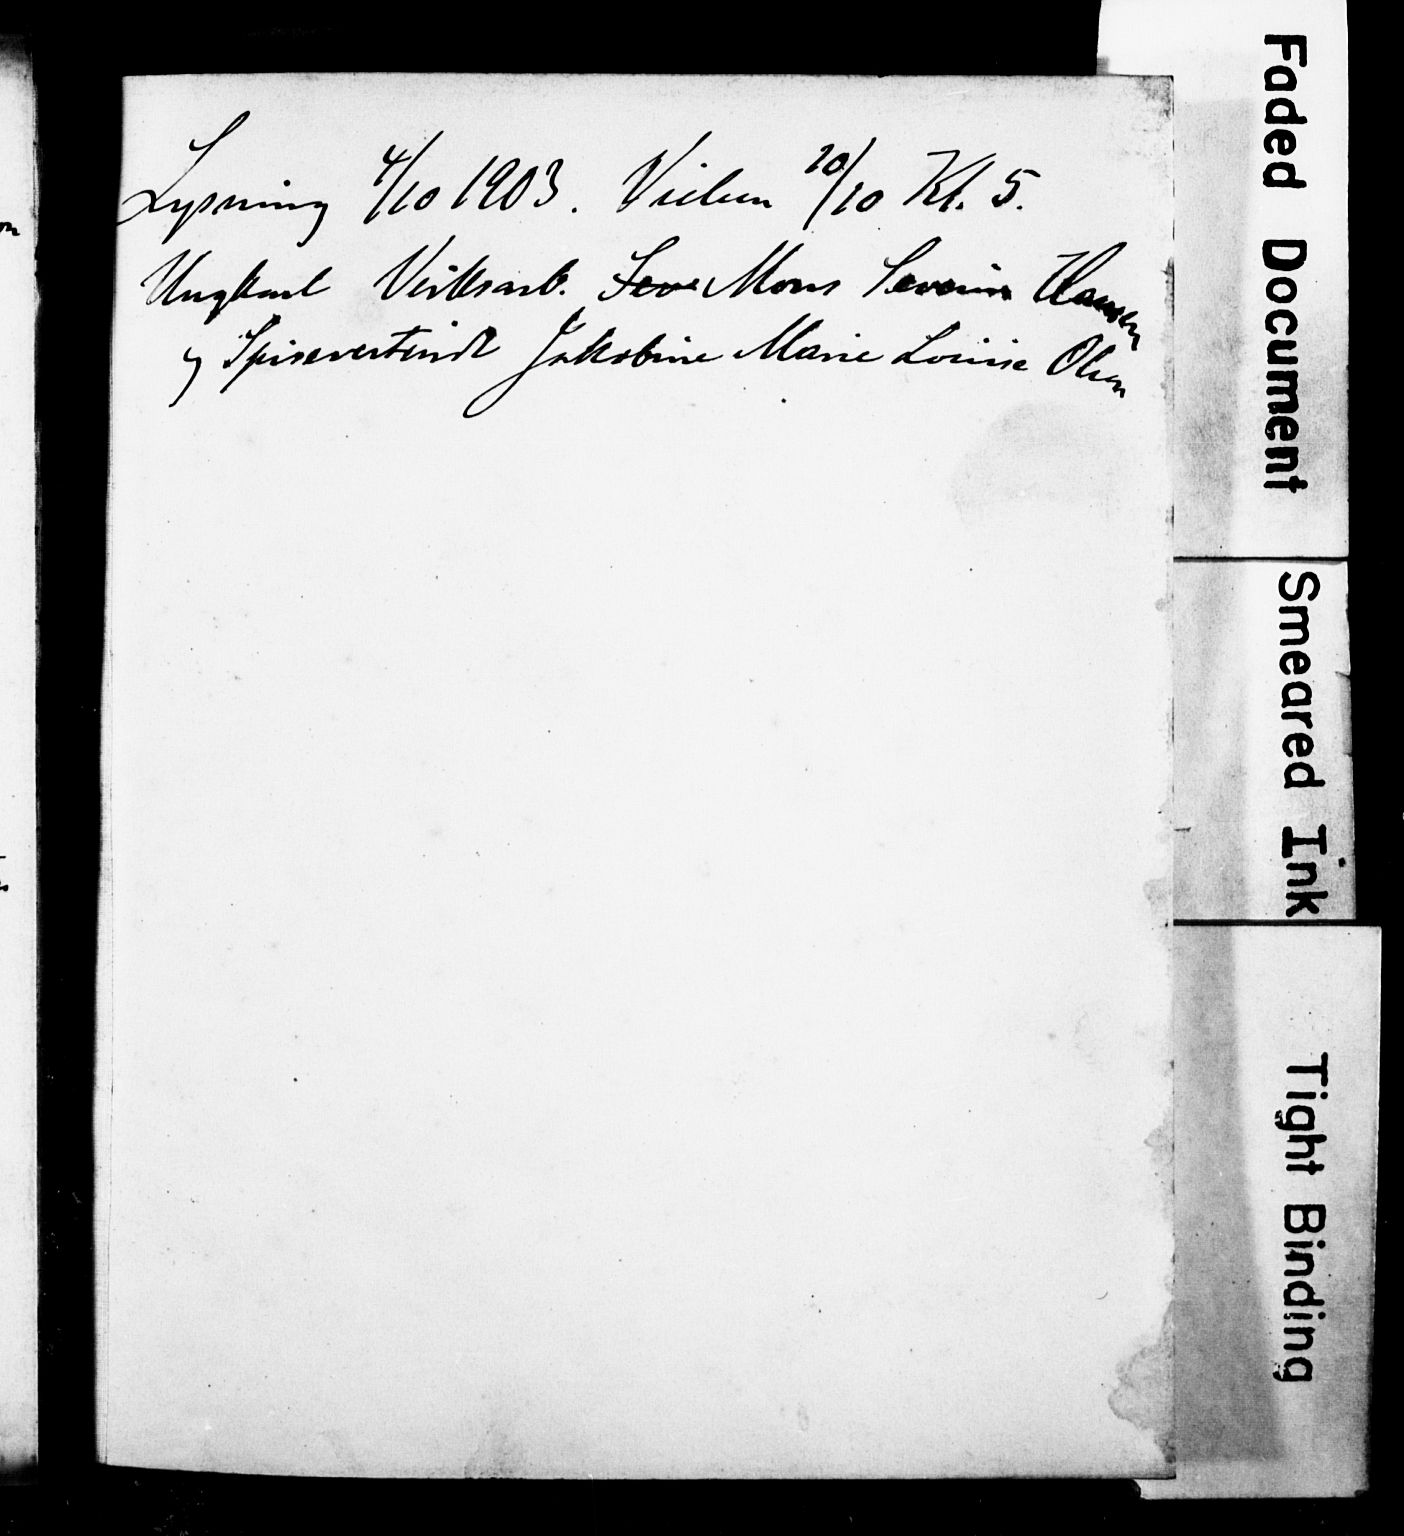 Lysning 4/10 1903. Vielsen 20/10 Kl. 5.
Ungkarl Verksarb. Seve Mons Severin Hansen
og Spisevertinde Jakobine Marie Louise Olsen
Faded Document
Smeared Ink
Tight Binding